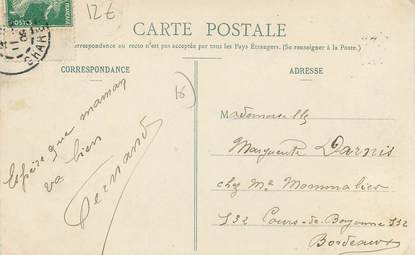 12€
CARTE POSTALE
La Correspondance au recto n'est pas acceptée par tous les Pays Étrangers. (Se renseigner à la Poste.)
CORRESPONDANCE
ADRESSE
16
Espère que maman
va bien
Fernand
Mademoiselle
Marguerite Darnis
chez Me
132 Cours de Bayonne 132
Bordeaux